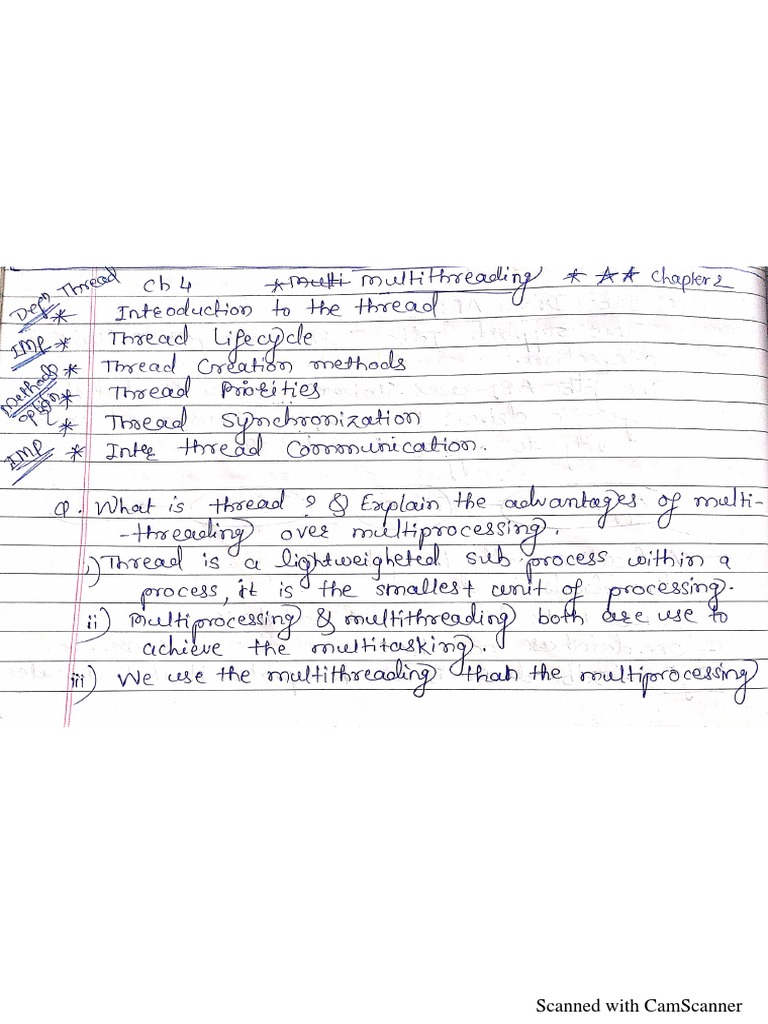 Ch 4 Multi Multithreading Chapter 2
Defn Thread * Introduction to the thread
IMP * Thread Lifecycle
* Thread Creation methods
Methods * Thread Priorities
option * Thread Synchronization
IMP * Inter thread Communication.
Q. What is thread ? & Explain the advantages of multi-
-threading over multiprocessing.
i) Thread is a lightweighted sub process within a
process, it is the smallest unit of processing.
ii) Multiprocessing & multithreading both are use to
achieve the multitasking.
iii) We use the multithreading than the multiprocessing
Scanned with CamScanner